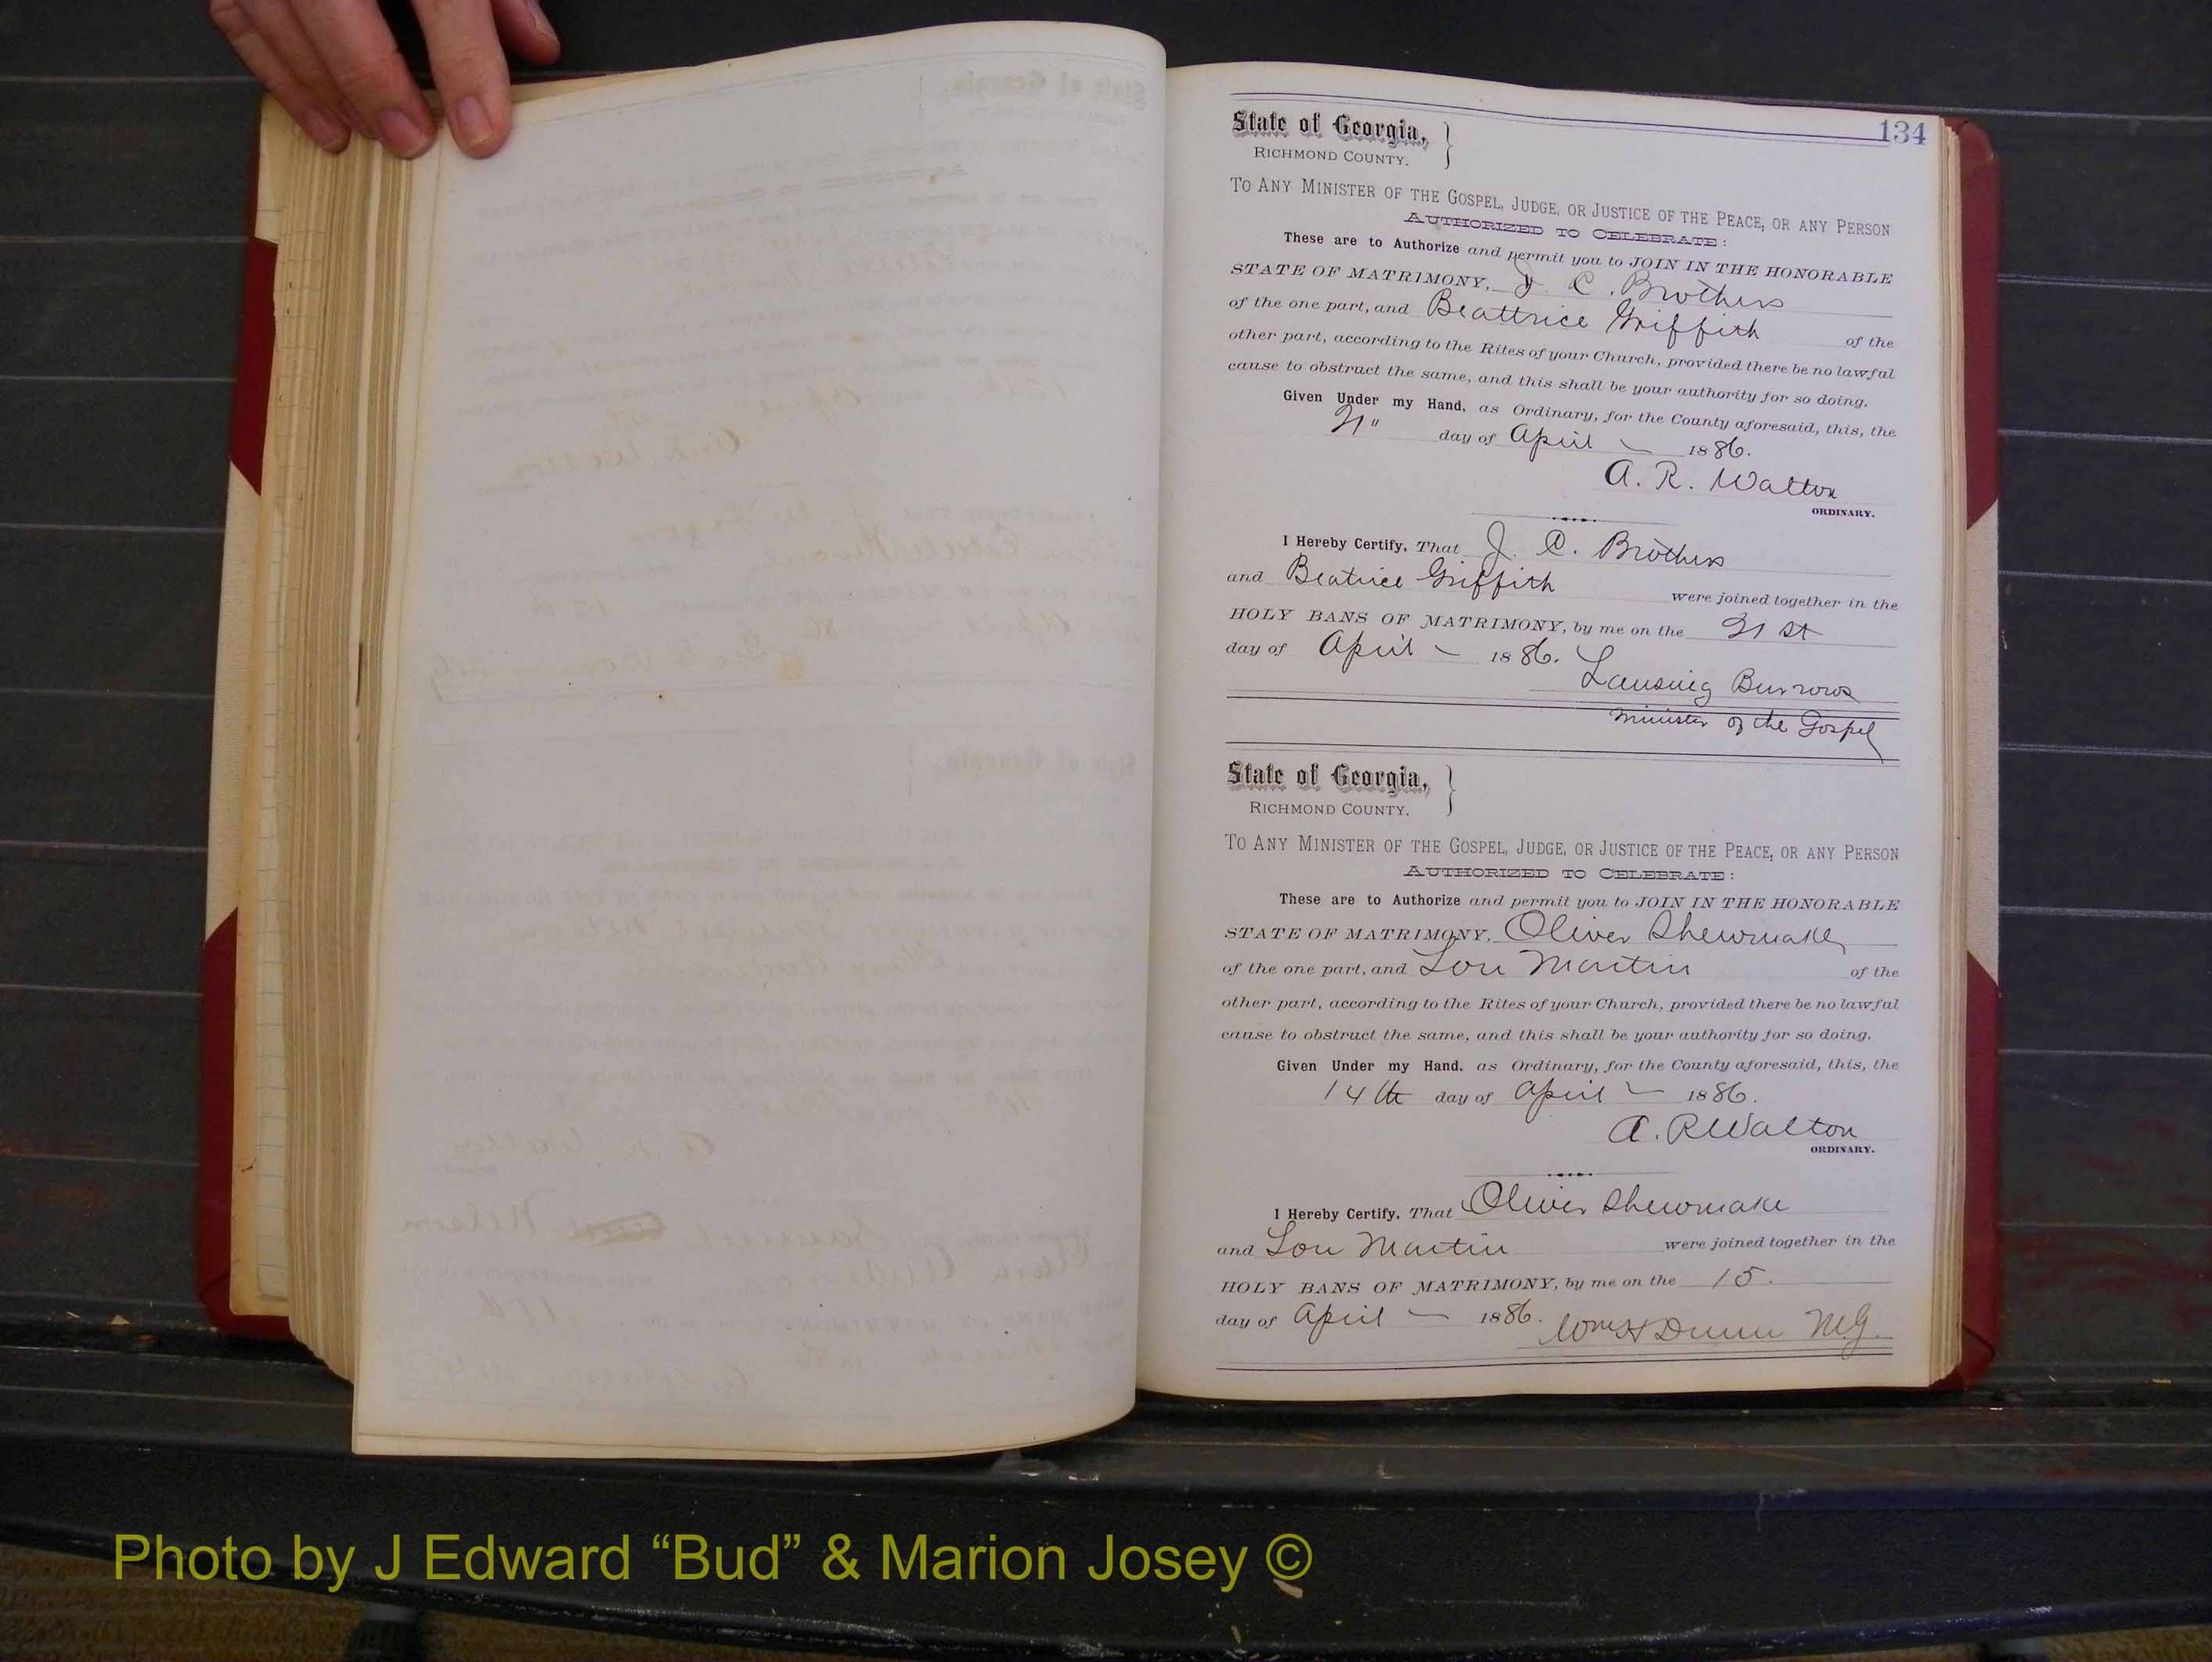 134
State of Georgia,
RICHMOND COUNTY.
TO ANY MINISTER OF THE GOSPEL, JUDGE, OR JUSTICE OF THE PEACE, OR ANY PERSON
AUTHORIZED TO CELEBRATE:
These are to Authorize and permit you to JOIN IN THE HONORABLE
STATE OF MATRIMONY, J. C. Brothers
of the one part, and Beattrice Griffith of the
other part, according to the Rites of your Church, provided there be no lawful
cause to obstruct the same, and this shall be your authority for so doing.
Given Under my Hand, as Ordinary, for the County aforesaid, this, the
21" day of April 1886.
A. R. Walton
ORDINARY.
I Hereby Certify, That J. C. Brothers
and Beatrice Griffith were joined together in the
HOLY BANS OF MATRIMONY, by me on the 21 st
day of April 1886. Lansing Burrows
Minister of the Gospel
State of Georgia,
RICHMOND COUNTY.
TO ANY MINISTER OF THE GOSPEL, JUDGE, OR JUSTICE OF THE PEACE, OR ANY PERSON
AUTHORIZED TO CELEBRATE:
These are to Authorize and permit you to JOIN IN THE HONORABLE
STATE OF MATRIMONY, Oliver Shewmake
of the one part, and Lou Martin of the
other part, according to the Rites of your Church, provided there be no lawful
cause to obstruct the same, and this shall be your authority for so doing.
Given Under my Hand, as Ordinary, for the County aforesaid, this, the
14th day of April 1886.
A. R Walton
ORDINARY.
I Hereby Certify, That Oliver Shewmake
and Lou Martin were joined together in the
HOLY BANS OF MATRIMONY, by me on the 15.
day of April 1886. Wm H Dunn M.G.
Photo by J Edward “Bud” & Marion Josey ©